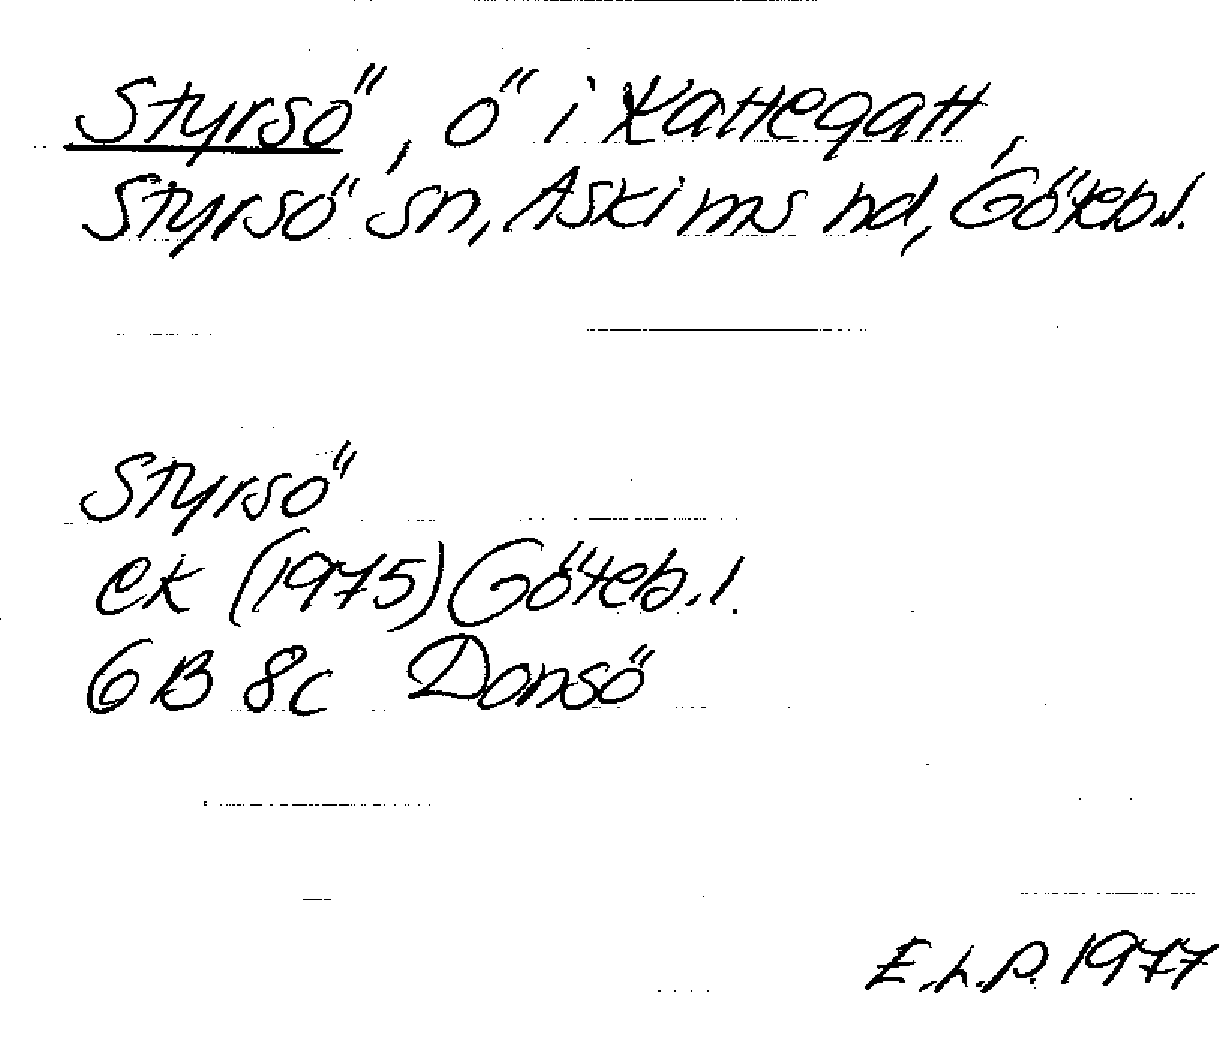 Styrsö, ö i Kattegatt,
Styrsö sn, Askims hd, Göteb.l.
Styrsö
ek (1975) Göteb.l.
6B 8c Donsö
E.L.P. 1977